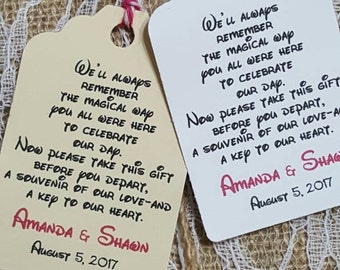 We'll always
remember
the magical way
you all were here
to celebrate
our day.
Now please take this gift
before you depart,
a souvenir of our love-and
a key to our heart.
Amanda & Shawn
August 5, 2017
We'll always
remember
the magical way
you all were here
to celebrate
our day.
Now please take this gift
before you depart,
a souvenir of our love-and
a key to our heart.
Amanda & Shawn
August 5, 2017